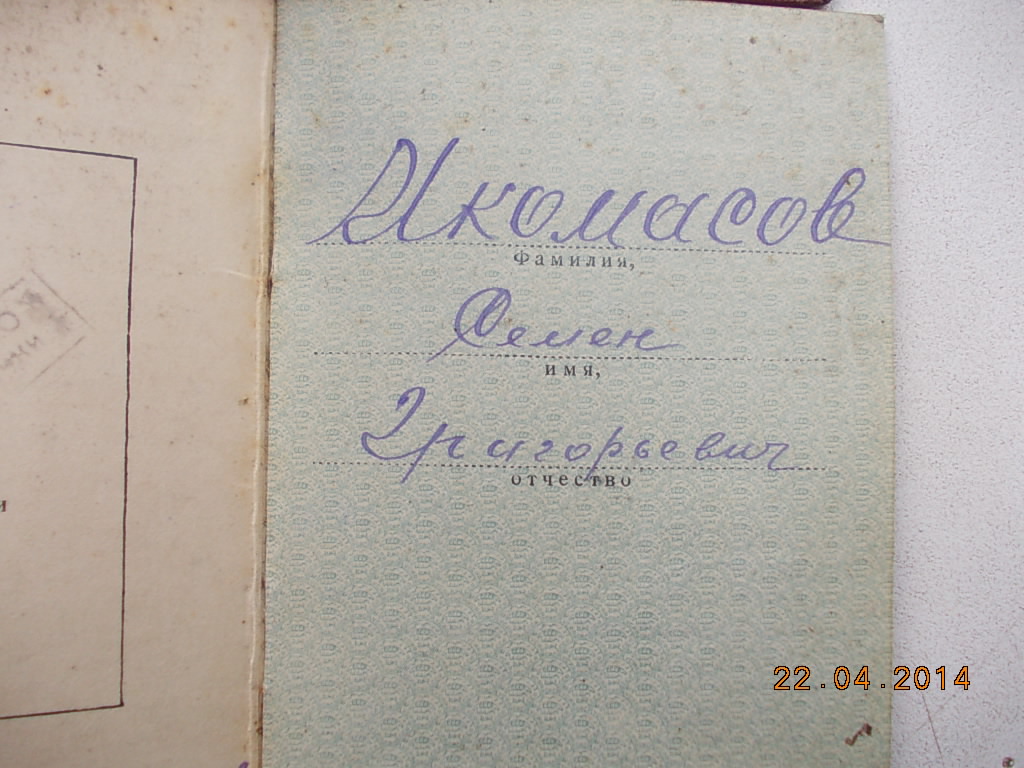 Икомасов
Фамилия,
Семен
имя,
Григорьевич
отчество
и
22.04.2014